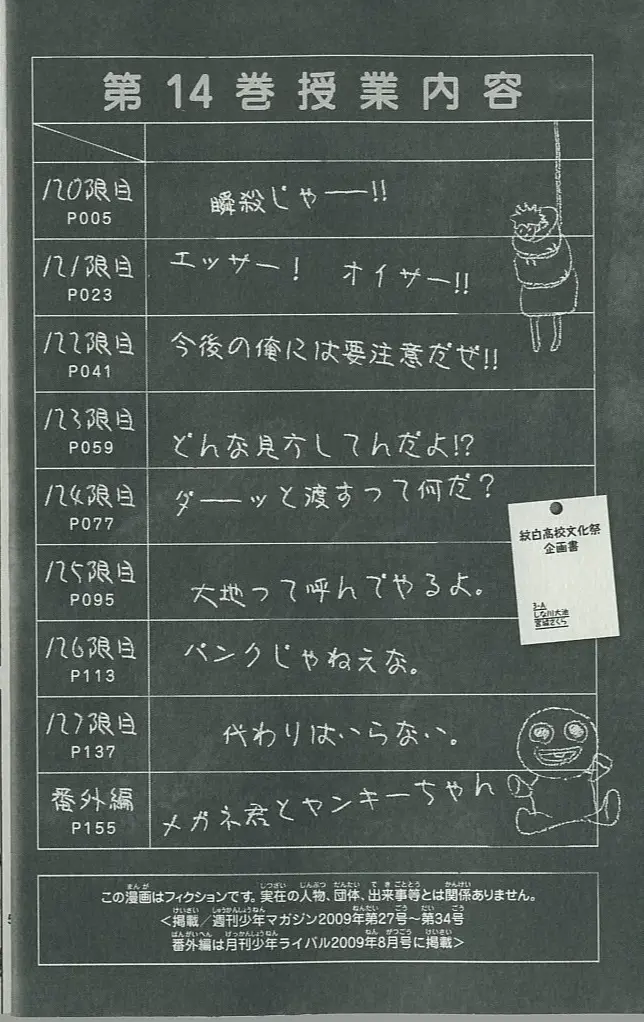 第14巻授業内容
120限目
P005
瞬殺じゃーー!!
121限目
P023
エッサー! オイサー!!
122限目
P041
今後の俺には要注意だぜ!!
123限目
P059
どんな見方してんだよ!?
124限目
P077
ダーーッと渡すって何だ?
125限目
P095
大地って呼んでやるよ。
126限目
P113
パンクじゃねえな。
127限目
P137
代わりはいらない。
番外編
P155
メガネ君とヤンキーちゃん
紋白高校文化祭
企画書
3-A
しな川大地
この漫画はフィクションです。実在の人物、団体、出来事等とは関係ありません。
<掲載/週刊少年マガジン2009年第27号〜第34号
番外編は月刊少年ライバル2009年8月号に掲載>